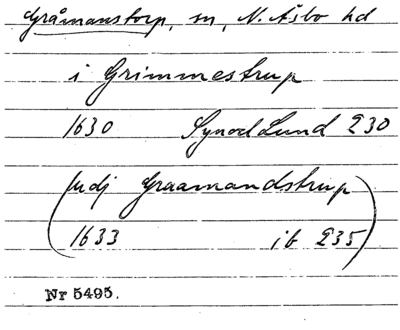 Gråmanstorp, sn, N. Åsbo hd
i Grimmestrup
1630 Synod Lund 230
(udj Graamandstrup
1633 ib 235)
Nr 5495.